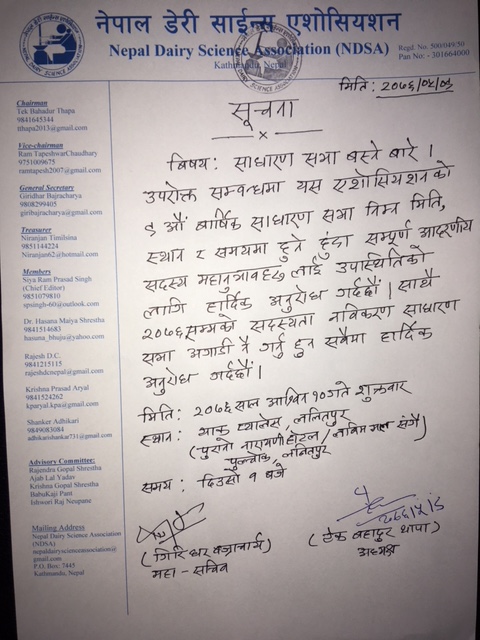 नेपाल डेरी साईन्स एशोसियशन
Nepal Dairy Science Association (NDSA)
Kathmandu, Nepal
Regd. No. 500/049/50
Pan No: - 301664000
Chairman
Tek Bahadur Thapa
9841645344
tthapa2013@gmail.com
Vice-chairman
Ram TapeshwarChaudhary
9751009675
ramtapesh2007@gmail.com
General Secretary
Giridhar Bajracharya
9808299405
giribajracharya@gmail.com
Treasurer
Niranjan Timilsina
9851144224
Niranjan62@hotmail.com
Members
Siya Ram Prasad Singh
(Chief Editor)
9851079810
spsingh-60@outlook.com
Dr. Hasana Maiya Shrestha
9841514683
hasana_bhuju@yahoo.com
Rajesh D.C.
9841215115
rajeshdcnepal@gmail.com
Krishna Prasad Aryal
9841524262
kparyal.kpa@gmail.com
Shanker Adhikari
9849083084
adhikarishankar731@gmail.com
Advisory Committee:
Rajendra Gopal Shrestha
Ajab Lal Yadav
Krishna Gopal Shrestha
BabuKaji Pant
Ishwori Raj Neupane
Mailing Address
Nepal Dairy Science Association
(NDSA)
nepaldairyscienceassociation@
gmail.com
P.O. Box: 7445
Kathmandu, Nepal
मिति: २०७६/०५/
सूचना
विषय: साधारण सभा बस्ने बारे ।
उपरोक्त सम्बन्धमा यस एशोसियशनको
९ औं बार्षिक साधारण सभा निम्न मिति,
स्थान र समयमा हुने हुंदा सम्पूर्ण आदरणीय
सदस्य महानुभावहरु लाई उपस्थितिको
लागि हार्दिक अनुरोध गर्दछौं । साथै
२०७६ सम्मको सदस्यता नविकरण साधारण
सभा अगाडी नै गर्नु हुन सबैमा हार्दिक
अनुरोध गर्दछौं ।
मिति: २०७६ साल आश्विन १० गते शुक्रवार
स्थान: याक प्यालेस, ललितपुर
(पुरानो नारायणी होटल/ लाबिम मल संगै)
पुल्चोक, ललितपुर
समय: दिउसो १ बजे
(गिरिधर बज्राचार्य)
महा-सचिव
(टेक बहादुर थापा)
अध्यक्ष